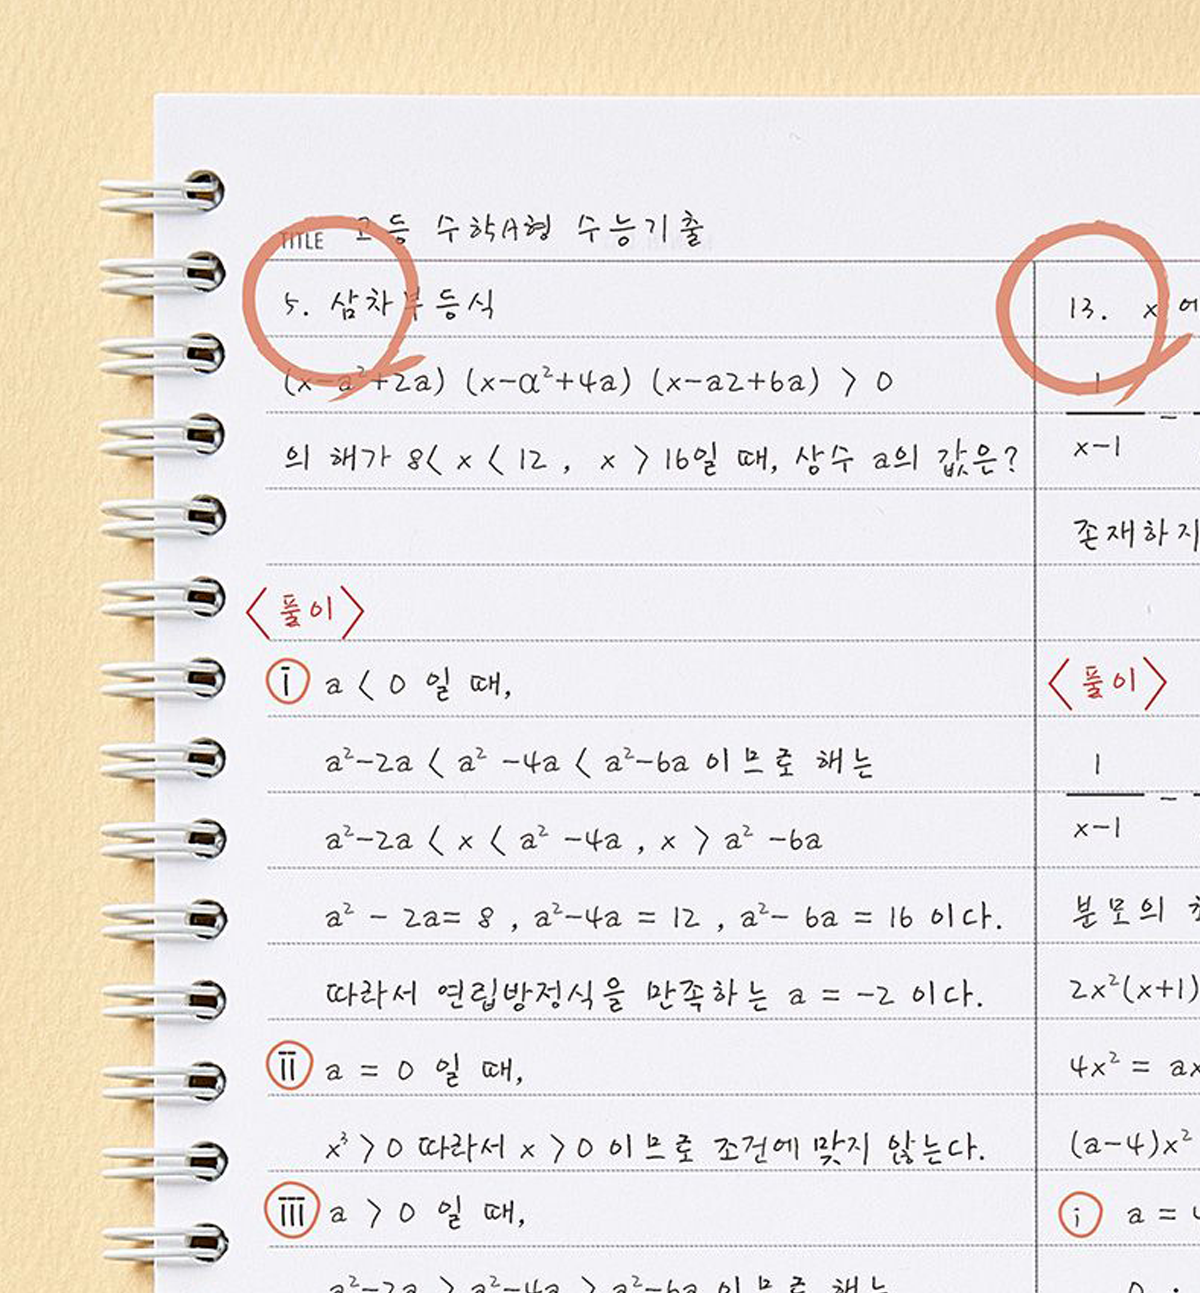 TITLE 고등 수학A형 수능기출
5. 삼차부등식
(x-a²+2a) (x-a²+4a) (x-a2+6a) > 0
의 해가 8< x < 12 , x > 16일 때, 상수 a의 값은?
<풀이>
ⅰ a < 0 일 때,
a²-2a < a² -4a < a²-6a 이므로 해는
a²-2a < x < a² -4a , x > a² -6a
a² - 2a= 8 , a²-4a = 12 , a²- 6a = 16 이다.
따라서 연립방정식을 만족하는 a = -2 이다.
ⅱ a = 0 일 때,
x³ > 0 따라서 x > 0 이므로 조건에 맞지 않는다.
ⅲ a > 0 일 때,
a²-2a > a²-4a > a²-6a 이므로 해는
13. x 에
1
x-1
존재하지
<풀이>
1
x-1
분모의
2x²(x+1)
4x² = ax
(a-4)x²
i a =